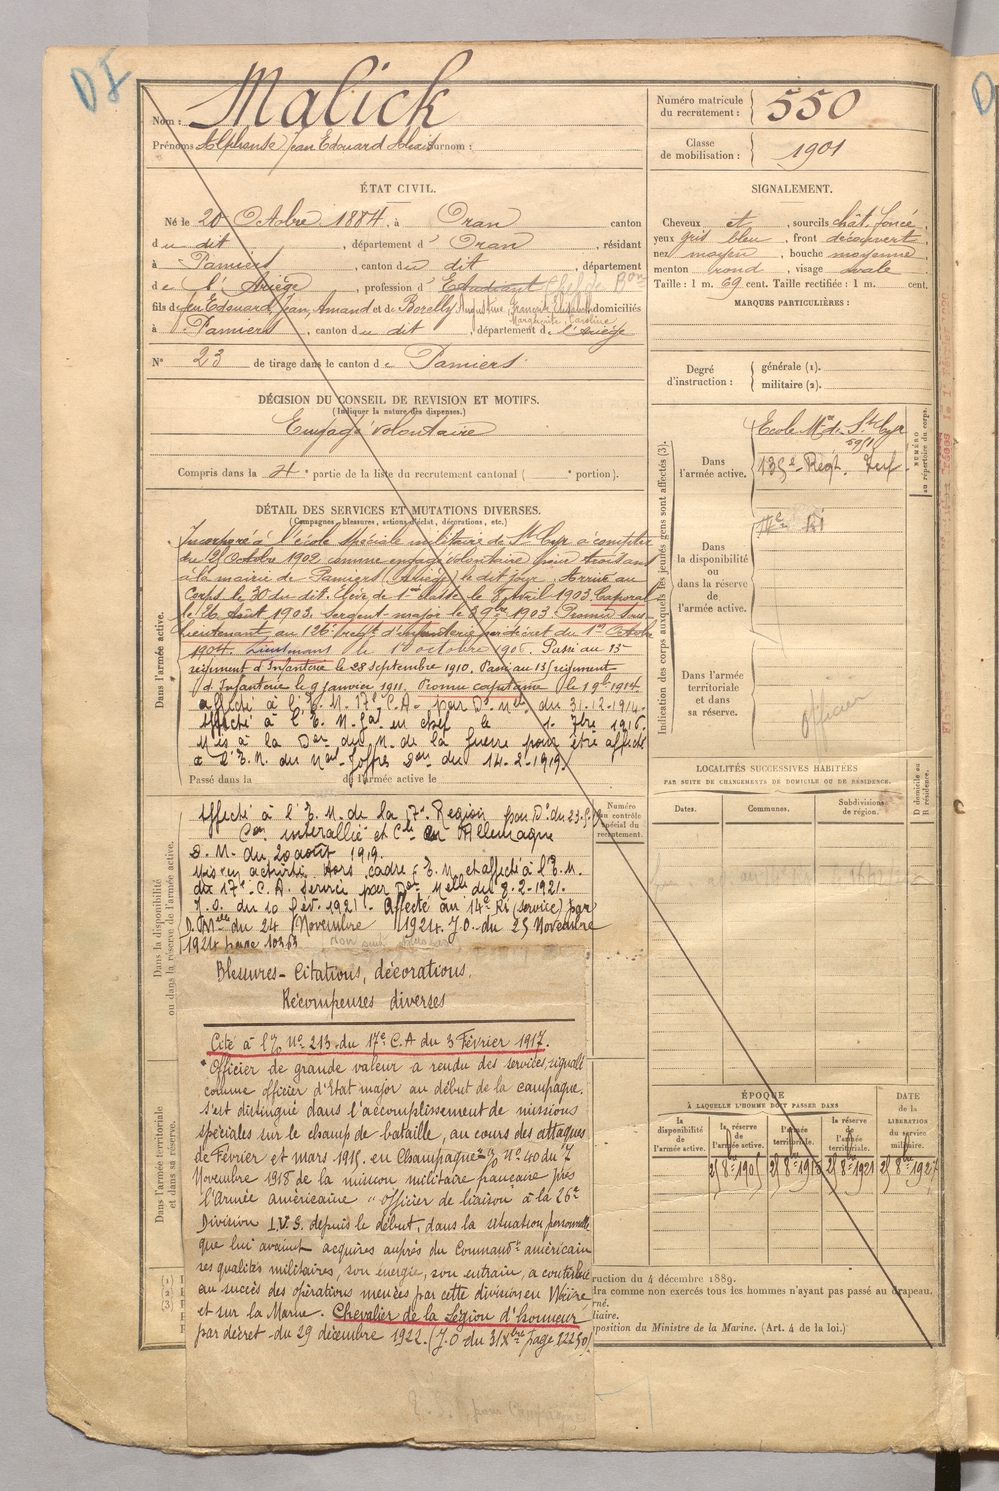 DI
Nom : Malick
Prénoms Alphonse Jean Edouard Alexis Surnom :
Numéro matricule du recrutement : 550
Classe de mobilisation : 1901
ÉTAT CIVIL.
Né le 20 Octobre 1884, à Oran canton
du dit, département d' Oran, résidant
à Pamiers, canton du dit, département
de l'Ariège, profession d' Etudiant
fils de feu Edouard, Jean, Amand et de Borelly Augustine, Françoise, Elisabeth domiciliés
Marguerite, Caroline
à Pamiers, canton du dit, département de l'Ariège
N° 23 de tirage dans le canton de Pamiers
SIGNALEMENT.
Cheveux et, sourcils chât. foncé,
yeux gris bleu, front découvert,
nez moyen, bouche moyenne,
menton rond, visage ovale
Taille : 1 m. 69 cent. Taille rectifiée : 1 m. cent.
MARQUES PARTICULIÈRES :
DÉCISION DU CONSEIL DE REVISION ET MOTIFS.
(Indiquer la nature des dispenses.)
Engagé volontaire
Compris dans la 4e partie de la liste du recrutement cantonal ( e portion).
Degré d'instruction : générale (1).
militaire (2).
DÉTAIL DES SERVICES ET MUTATIONS DIVERSES.
(Campagnes, blessures, actions d'éclat, décorations, etc.)
Dans l'armée active.
Incorporé à l'école spéciale militaire de St Cyr à compter
du 21 Octobre 1902 comme engagé volontaire pour trois ans
à la mairie de Pamiers (Ariège) le dit jour. Arrivé au
Corps le 30 du dit. Elève de 1re classe le 8 avril 1903. Caporal
le 26 Août 1903. Sergent major le 3 9bre 1903. Promu Sous-
lieutenant au 126e Régt d'infanterie par décret du 1er Octobre
1904. Lieutenant le 1er octobre 1906. Passé au 15e
régiment d'Infanterie le 28 septembre 1910. Passé au 135 régiment
d'Infanterie le 9 janvier 1911. Promu capitaine le 1914
affecté à l'E.M. 17e C.A. par Don Mlle du 31-12-1914.
affecté à l'E.M. Gal en chef le 1-7bre 1916.
Mis à la Don du M. de la Guerre pour être affecté
à l'E.M. du Mal Joffre Don du 14-2-1919.
Passé dans la de l'armée active le
Indication des corps auxquels les jeunes gens sont affectés (3).
Dans l'armée active.
Ecole Mre de St Cyr
135e Regt. Inf
NUMÉRO au répertoire du corps.
Dans la disponibilité ou dans la réserve de l'armée active.
14e RI
Dans l'armée territoriale et dans sa réserve.
Officier
Dans la disponibilité ou dans la réserve de l'armée active.
Affecté à l'E.M. de la 17e Région par Don du 23-5-19
Con interalliée et Cle en Allemagne
D.M. du 20 août 1919.
Mis en activité hors cadre E.M. et affecté à l'E.M.
du 17e C.A. Service par Don Mlle du 8-2-1921.
J.O. du 10 fév. 1921. Affecté au 14e RI (service) par
D. Mlle du 24 Novembre 1924. J.O. du 25 Novembre
1924 page
Numéro au contrôle spécial du recrutement.
LOCALITÉS SUCCESSIVES HABITÉES
PAR SUITE DE CHANGEMENTS DE DOMICILE OU DE RÉSIDENCE.
Dates. Communes. Subdivisions de région. D domicile ou R résidence.
Blessures - Citations, décorations,
Récompenses diverses
Cité à l'O n° 213 du 17e C.A du 3 Février 1917.
"Officier de grande valeur a rendu des services signalés
comme officier d'Etat major au début de la campagne.
s'est distingué dans l'accomplissement de missions
spéciales sur le champ de bataille, au cours des attaques
de Février et mars 1915, en Champagne" O n° 40 du 7
Novembre 1918 de la mission militaire française près
l'Armée américaine "officier de liaison à la 26e
Division U.S. depuis le début, dans la situation personnelle
que lui avaient acquises auprès du Commandt américain
ses qualités militaires, son énergie, son entrain, a contribué
au succès des opérations menées par cette division en Woëvre
et sur la Marne. Chevalier de la Légion d'honneur
par décret du 29 décembre 1922. (J.O du 31 Xbre page
Dans l'armée territoriale et dans sa réserve.
ÉPOQUE
À LAQUELLE L'HOMME DOIT PASSER DANS
la disponibilité de l'armée active. la réserve de l'armée active. l'armée territoriale. la réserve de l'armée territoriale. DATE de la LIBÉRATION du service militaire.
21 8bre 1905 21 8bre 21 8bre 1921 21 8bre 1927
(1)
(2)
(3)
ruction du 4 décembre 1889.
dra comme non exercés tous les hommes n'ayant pas passé au drapeau.
rné.
liaire.
position du Ministre de la Marine. (Art. 4 de la loi.)